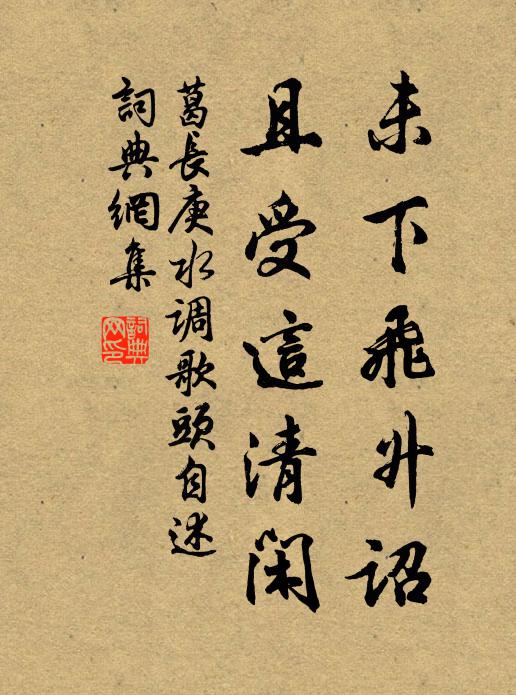 未下飛升詔
且受這清閑
葛長庚水調歌頭自述
詞典網集
詞典網印